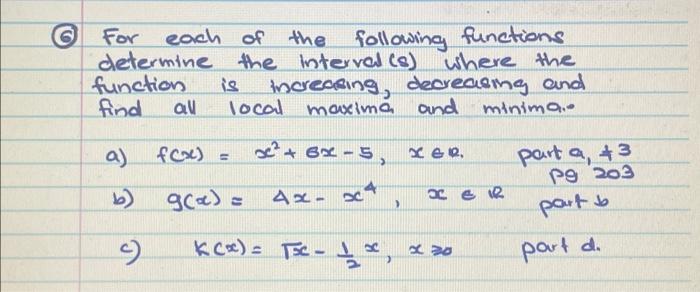 ⑥ For each of the following functions
determine the interval(s) where the
function is increasing, decreasing and
find all local maxima and minima.
a) f(x) = x² + 6x - 5, x ∈ ℝ. part a, #3
pg 203
b) g(x) = 4x - x⁴, x ∈ ℝ part b
c) K(x) = √x - 1/2 x, x ≥ 0 part d.